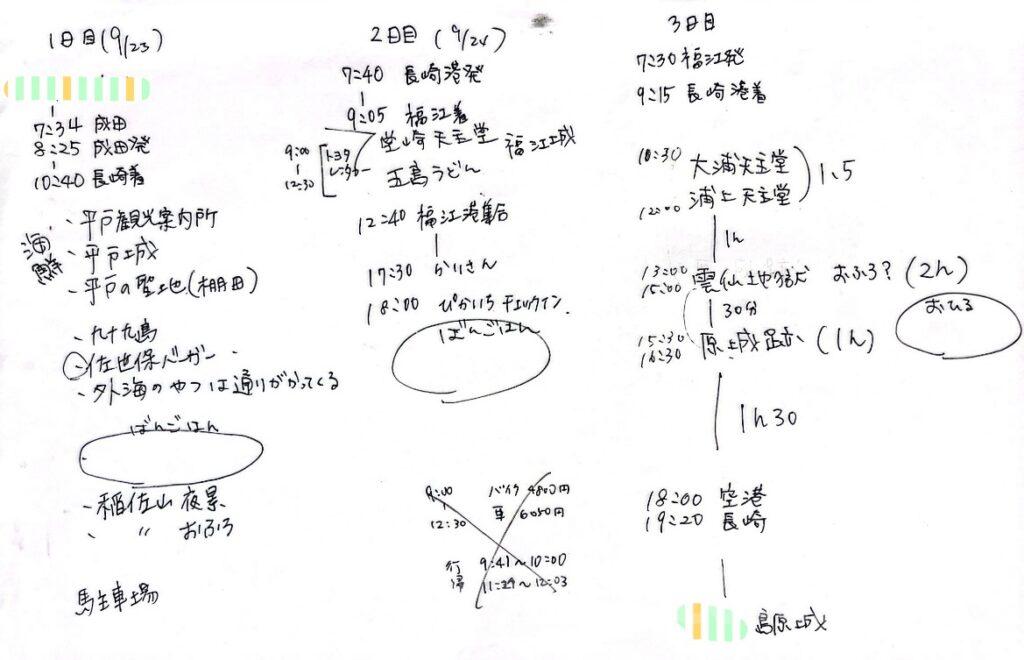 1日目(9/23)
7:34 成田
8:25 成田発
10:40 長崎着
・平戸観光案内所
海鮮
・平戸城
・平戸の聖地(棚田)
・九十九島
・佐世保バーガー
・外海のやつは通りがかってくる
ばんごはん
・稲佐山 夜景
・ 〃 おふろ
駐車場
2日目 (9/24)
7:40 長崎港発
9:05 福江着
堂崎天主堂 福江城
9:00
12:30
トヨタ
レンタカー
五島うどん
12:40 福江港集合
17:30 かいさん
18:00 ぴかいち チェックイン
ばんごはん
9:00 バイク 4800円
12:30 車 6050円
行 9:41~10:00
帰 11:29~12:03
3日目
7:30 福江発
9:15 長崎港着
10:30 大浦天主堂
12:00 浦上天主堂
1.5
1h
13:00
15:00 雲仙地獄 おふろ? (2h)
30分
おひる
15:30
16:30 原城跡 (1h)
1h30
18:00 空港
19:20 長崎
島原城